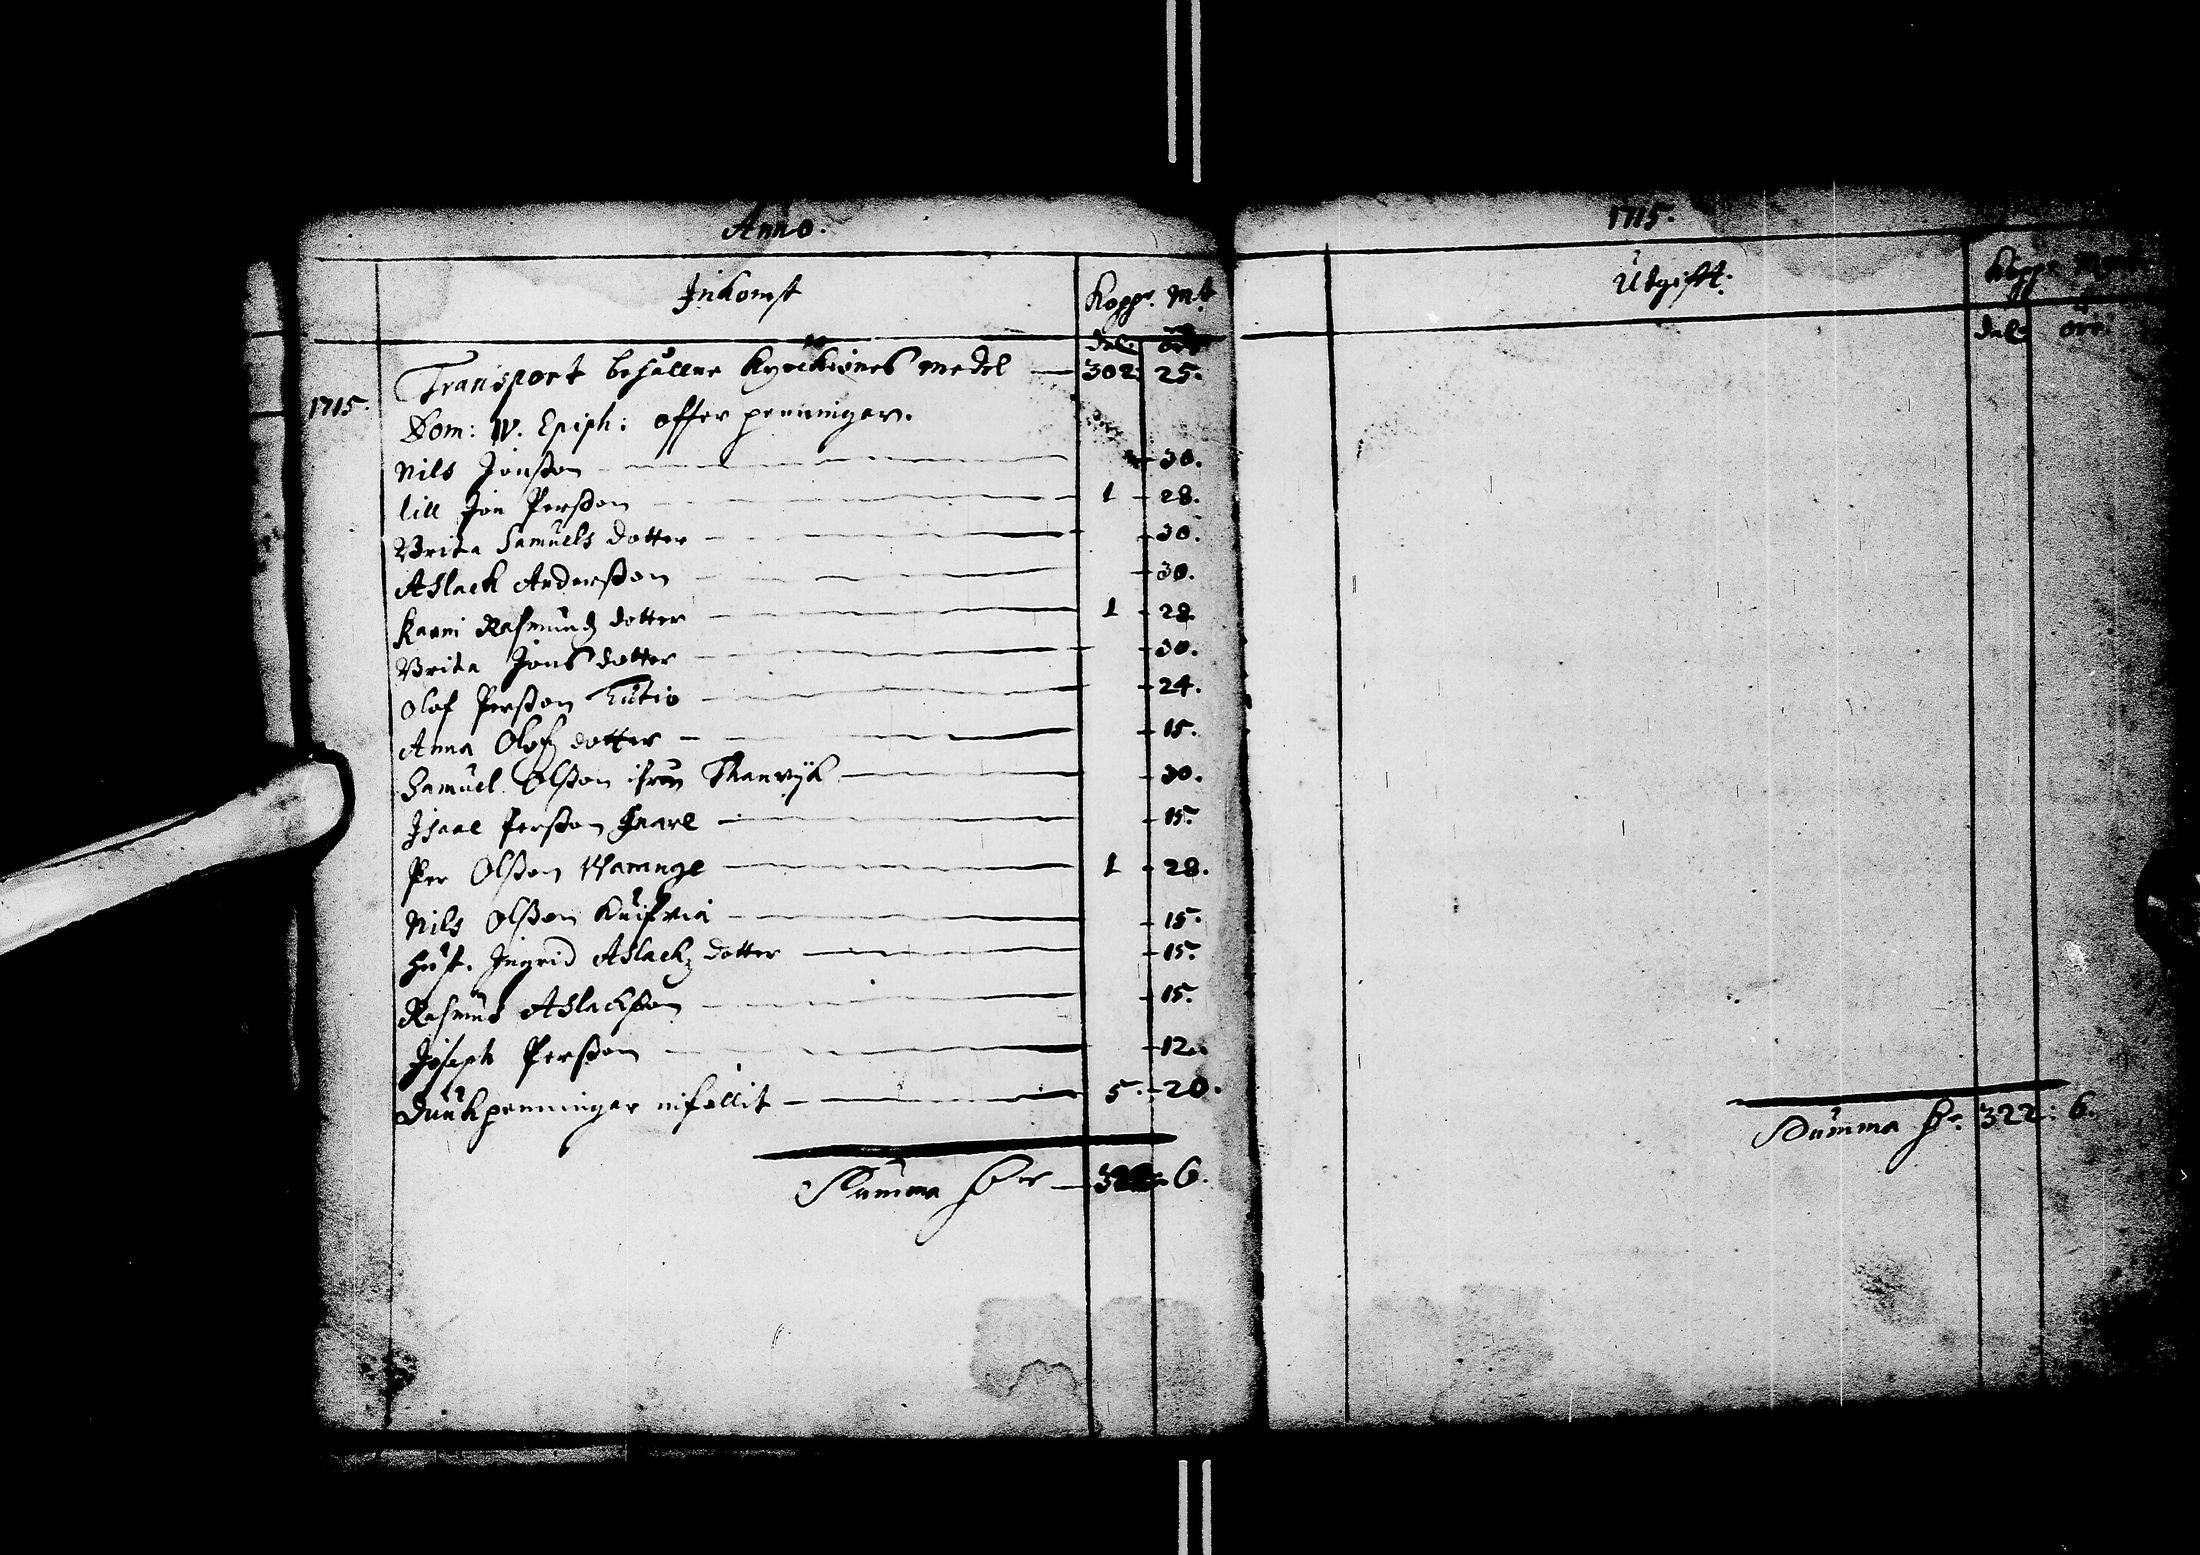 Anno.
Inkomst Kopp.r Mt
dal: ör
Transport behållne Kyrckiones medel — 302: 25.
1715. Dom: IV. Epiph: offer penningar.
Nils Jonsson — 30.
lill Jon Persson — 1 — 28.
Brita Samuels dotter — 30.
Aslack Andersson — 30.
Karin Rasmundz dotter — 1 — 28.
Brita Jons dotter — 30.
Olof Persson — 24.
Anna Olofz dotter — 15.
Samuel Olsson ifrån — 30.
Isaac Persson Enare — 15.
Per Olsson Warange — 1 — 28.
Nils Olsson — 15.
Hust. Ingrid Aslackz dotter — 15.
Rasmus Aslacksson — 15.
Joseph Persson — 12.
Duukpenningar influtit — 5. — 20.
Summa S:r — 322: 6.
1715.
Utgift. Koppr
dal: öre
Summa S:r 322: 6.